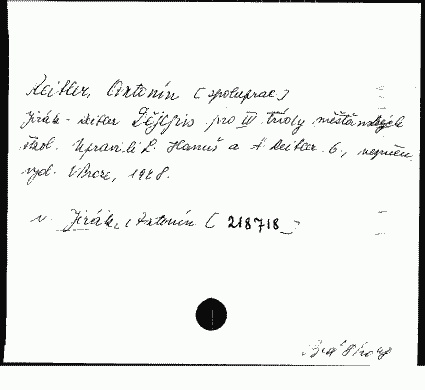 Reitler, Antonín [spoluprac.]
Jirák - Reitler Dějepis pro III. třídy měšťanských
škol. Upravili L. Hanuš a A. Reitler. 6., nezměn.
vyd. V Praze, 1928.
v. Jirák, Antonín [218718]